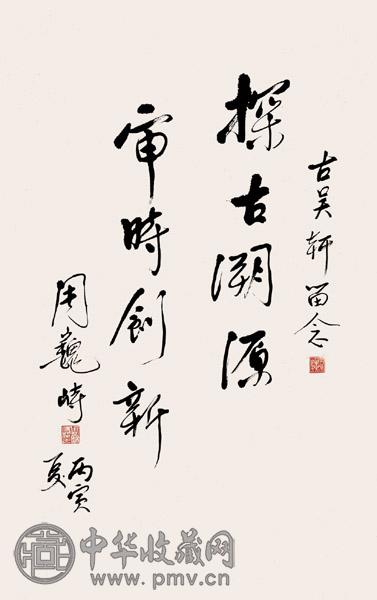 古吴轩留念
探古溯源
审时创新
周巍峙
丙寅
夏
中华收藏网
www.pmv.cn